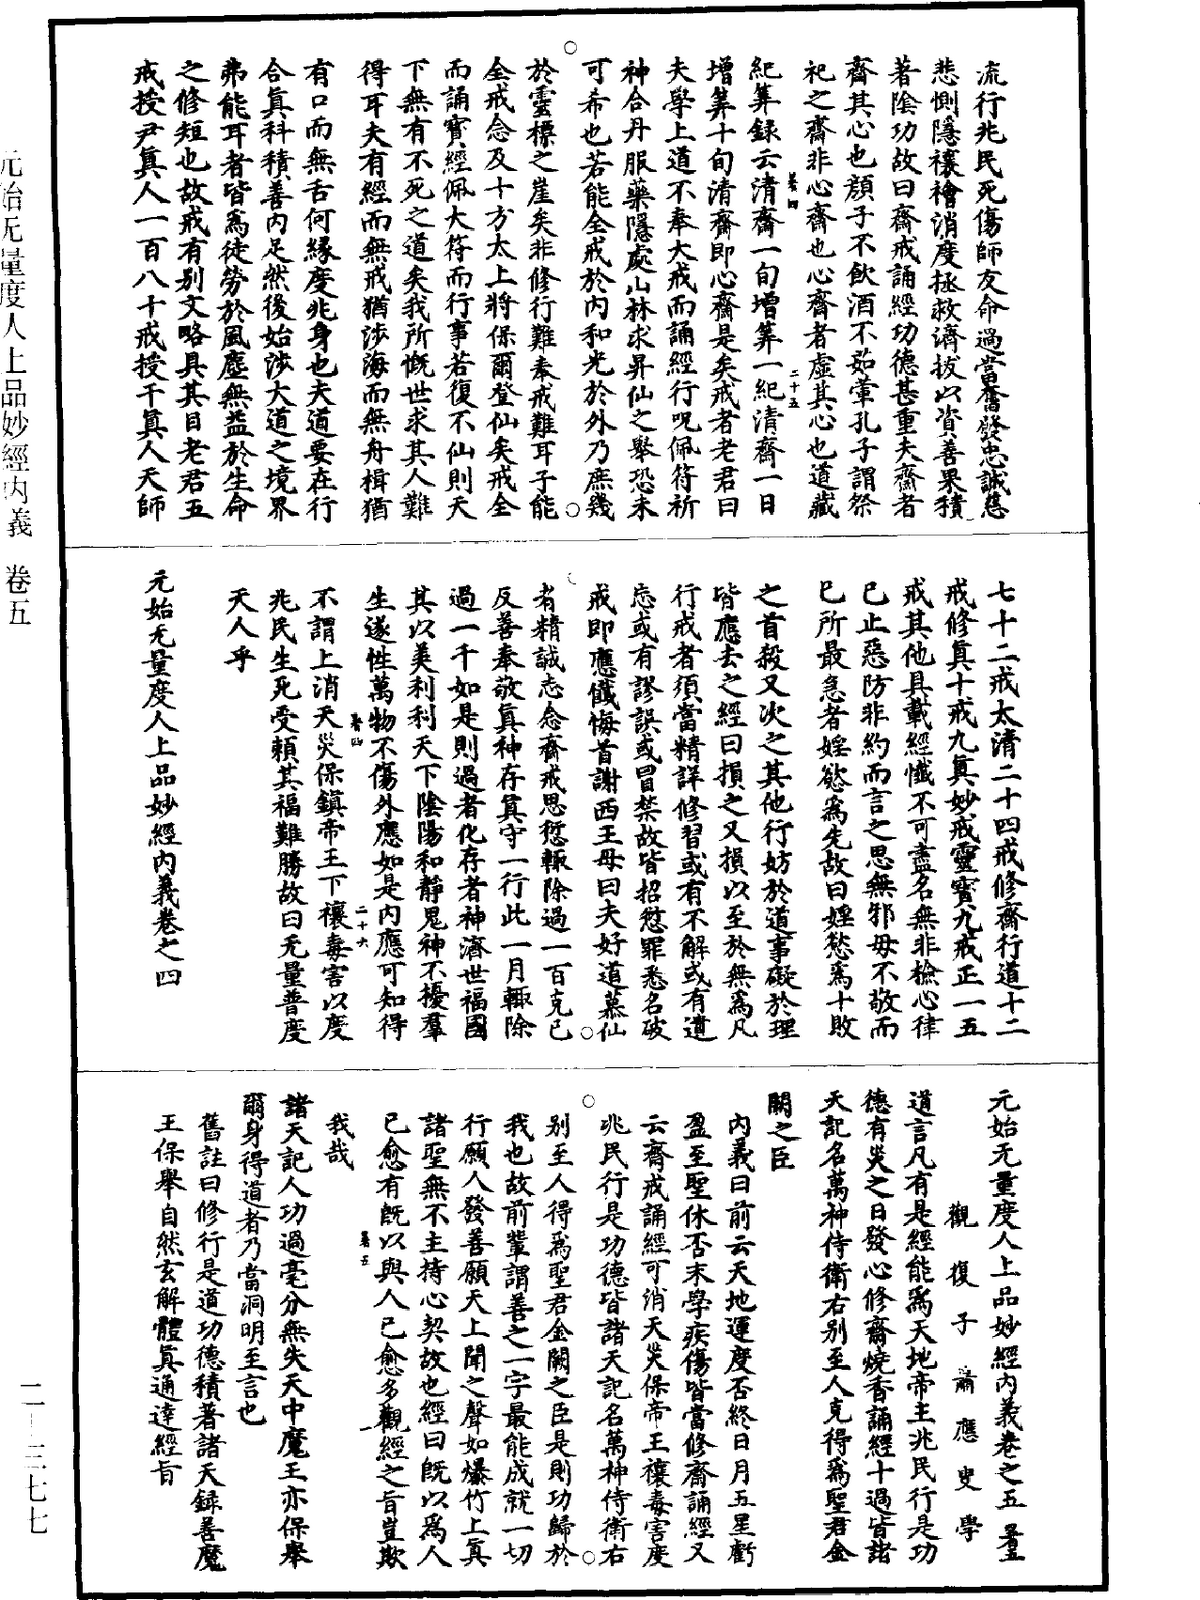 流行兆民死傷師友命過當奮發忠誠慈
悲惻隱禳禬消度拯救濟拔以資善果積
著陰功故曰齋戒誦經功德甚重夫齋者
齋其心也顔子不飲酒不茹葷孔子謂祭
祀之齋非心齋也心齋者虛其心也道藏
紀筭録云清齋一旬增筭一紀清齋一日
增筭十旬清齋即心齋是矣戒者老君曰
夫學上道不奉大戒而誦經行呪佩符祈
神合丹服藥隱處山林求昇仙之舉恐未
可希也若能全戒於内和光於外乃庶幾
於靈標之崖矣非修行難奉戒難耳子能
全戒念及十方太上將保爾登仙矣戒全
而誦寳經佩大符而行事若復不仙則天
下無有不死之道矣我所慨世求其人難
得耳夫有經而無戒猶涉海而無舟楫猶
有口而無舌何緣度兆身也夫道要在行
合眞科積善内足然後始涉大道之境界
弗能耳者皆爲徒勞於風塵無益於生命
之修短也故戒有别文略具其目老君五
戒授尹眞人一百八十戒授干眞人天師
七十二戒太清二十四戒修齋行道十二
戒修眞十戒九眞妙戒靈寳九戒正一五
戒其他具載經懺不可盡名無非檢心律
已止惡防非約而言之思無邪毋不敬而
已所最急者婬慾爲先故曰婬慾爲十敗
之首殺又次之其他行妨於道事礙於理
皆應去之經曰損之又損以至於無爲凡
行戒者須當精詳修習或有不解或有遺
忘或有謬誤或冒禁故皆招愆罪悉名破
戒即應懺悔首謝西王母曰夫好道慕仙
者精誠志念齋戒思愆輒除過一百克已
反善奉敬眞神存眞守一行此一月輒除
過一千如是則過者化存者神濟世福國
其以美利利天下陰陽和靜鬼神不擾羣
生遂性萬物不傷外應如是内應可知得
不謂上消天災保鎮帝王下禳毒害以度
兆民生死受賴其福難勝故曰无量普度
天人乎
元始无量度人上品妙經内義卷之四
元始无量度人上品妙經内義卷之五
觀復子蕭應叟學
道言凡有是經能爲天地帝主兆民行是功
德有災之日發心修齋燒香誦經十過皆諸
天記名萬神侍衛右别至人克得爲聖君金
闕之臣
内義曰前云天地運度否終日月五星虧
盈至聖休否末學疾傷皆當修齋誦經又
云齋戒誦經可消天災保帝王禳毒害度
兆民行是功德皆諸天記名萬神侍衛右
别至人得爲聖君金闕之臣是則功歸於
我也故前輩謂善之一字最能成就一切
行願人發善願天上聞之聲如爆竹上眞
諸聖無不主持心契故也經曰旣以爲人
已愈有旣以與人已愈多觀經之旨豈欺
我哉
諸天記人功過毫分無失天中魔王亦保舉
爾身得道者乃當洞明至言也
舊註曰修行是道功德積著諸天録善魔
王保舉自然玄解體眞通達經旨
元始无量度人上品妙經内義　卷五
二—三七七